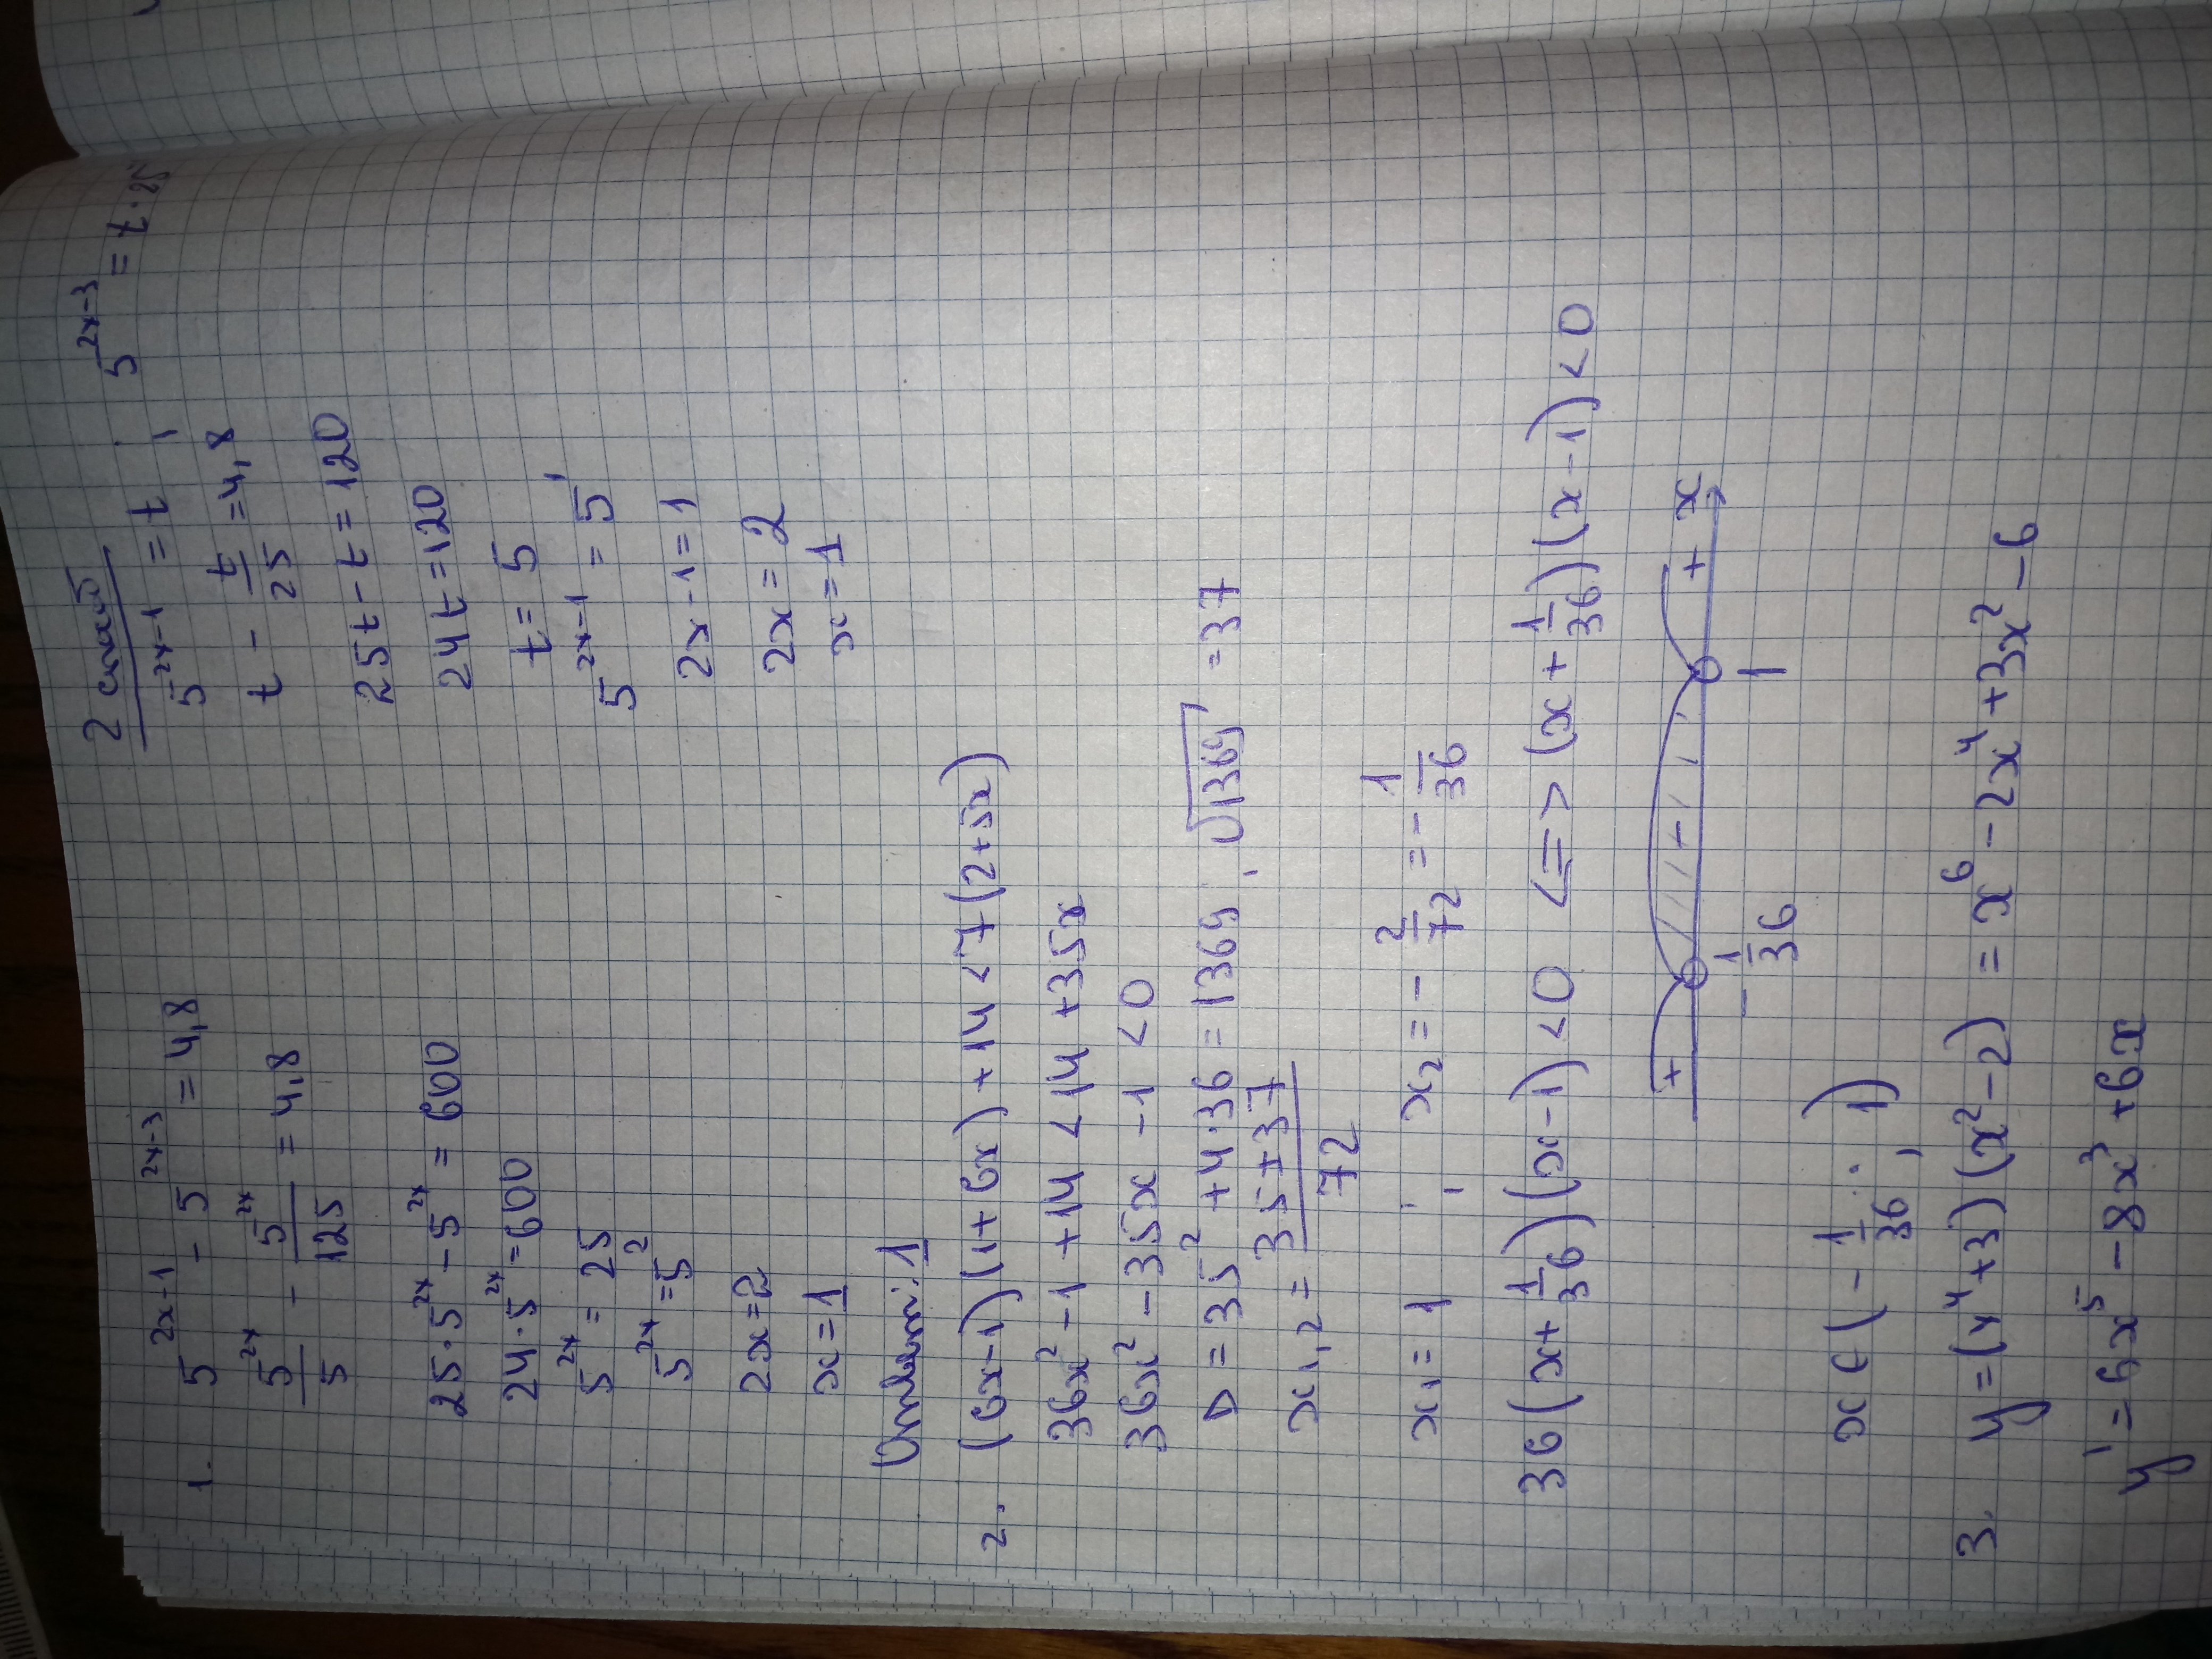 1. 5^{2x-1} - 5^{2x-3} = 4,8
5^{2x}/5 - 5^{2x}/125 = 4,8
25·5^{2x} - 5^{2x} = 600
24·5^{2x} = 600
5^{2x} = 25
5^{2x} = 5^2
2x = 2
x = 1
Ответ: 1
2 способ
5^{2x-1} = t ; 5^{2x-3} = t · 25
t - t/25 = 4,8
25t - t = 120
24t = 120
t = 5
5^{2x-1} = 5^1
2x - 1 = 1
2x = 2
x = 1
2. (6x-1)(1+6x) + 14 < 7(2+5x)
36x^2 - 1 + 14 < 14 + 35x
36x^2 - 35x - 1 < 0
D = 35^2 + 4·36 = 1369, √1369 = 37
x_{1,2} = (35 ± 37)/72
x_1 = 1 ; x_2 = - 2/72 = - 1/36
36(x + 1/36)(x-1) < 0 <=> (x + 1/36)(x-1) < 0
+ - + x
- 1/36 1
x ∈ (- 1/36 ; 1)
3. y = (x^4+3)(x^2-2) = x^6 - 2x^4 + 3x^2 - 6
y' = 6x^5 - 8x^3 + 6x